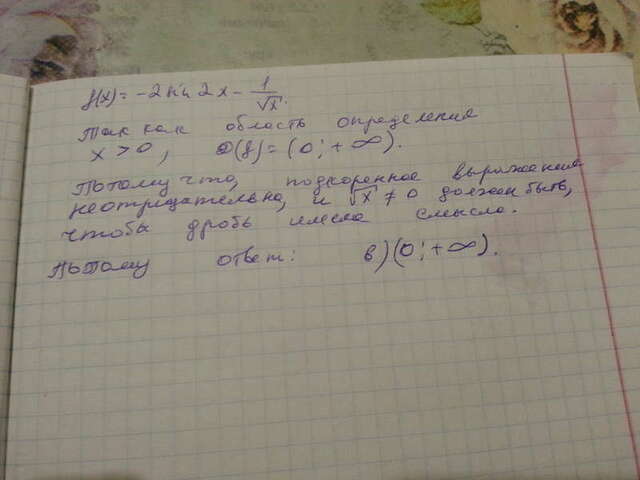 f(x) = -2 sin 2x - 1/√x.
Так как область определения
x > 0, D(f) = (0; +∞).
Потому что, подкоренное выражение
неотрицательно, и √x ≠ 0 должен быть,
чтобы дробь имела смысла.
Потому ответ: в) (0; +∞).